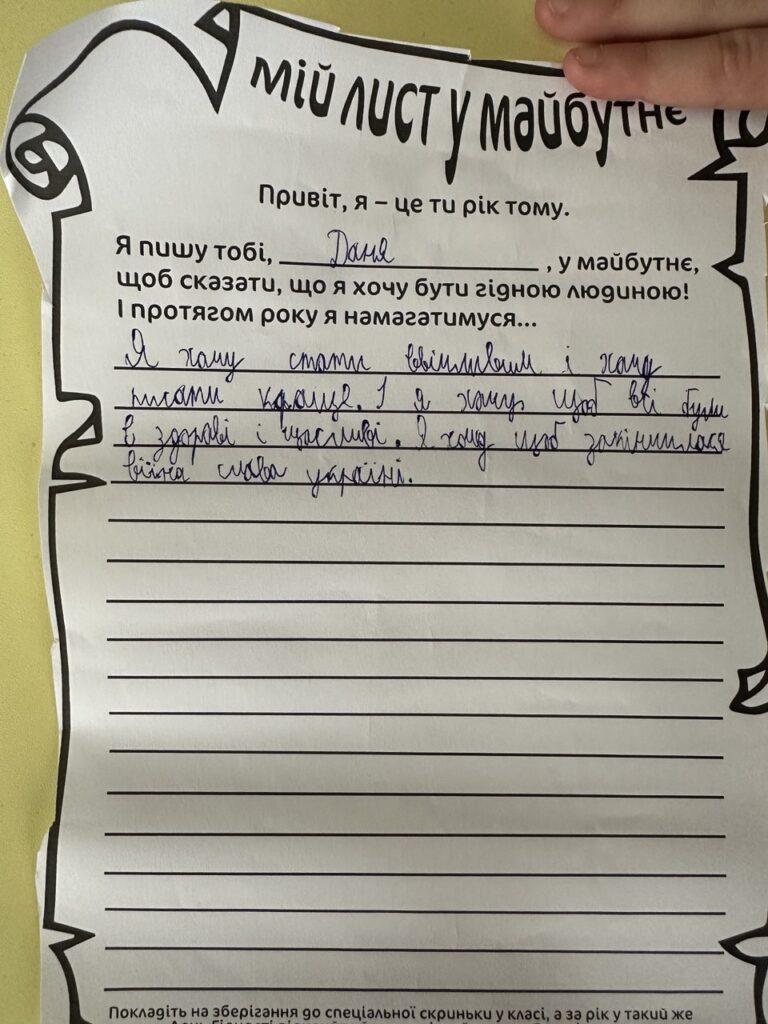 мій лист у майбутнє
Привіт, я – це ти рік тому.
Я пишу тобі, Даня , у майбутнє,
щоб сказати, що я хочу бути гідною людиною!
І протягом року я намагатимуся...
Я хочу стати ввічливим і хочу
писати краще. І я хочу щоб всі були
в здораві і щасливі. Я хочу щоб закінчилася
війна слава україні.
Покладіть на зберігання до спеціальної скриньки у класі, а за рік у такий же